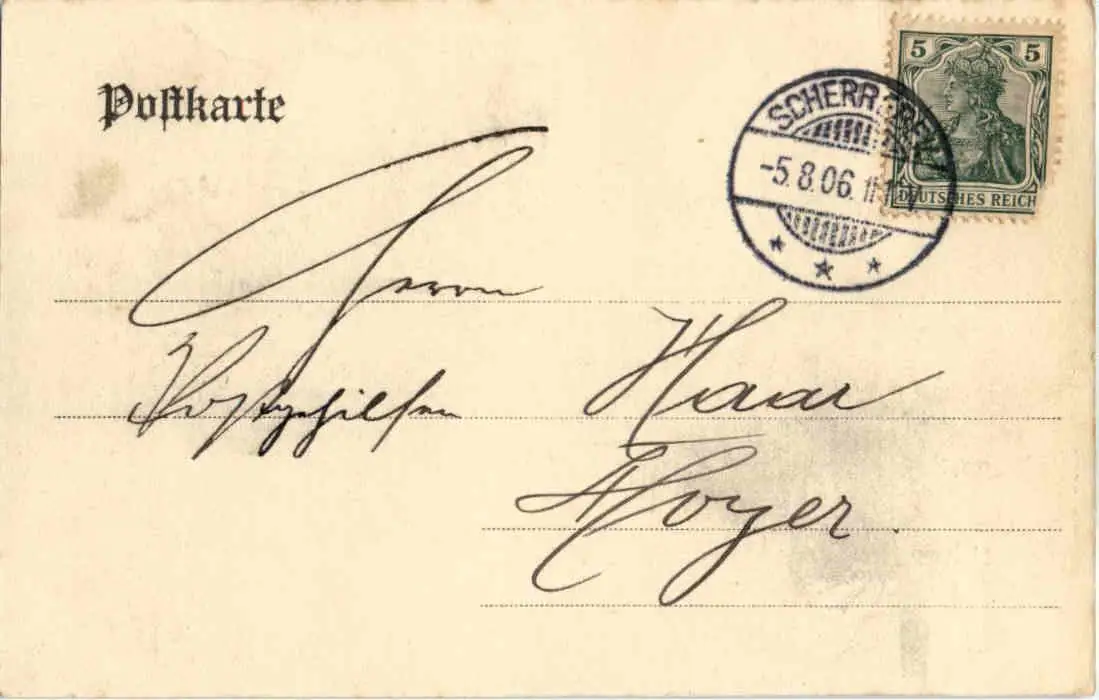 Postkarte
5 5
DEUTSCHES REICH
SCHERR
-5.8.06. 11-12V
Herrn
Postgehilfen Haar
Hoyer.